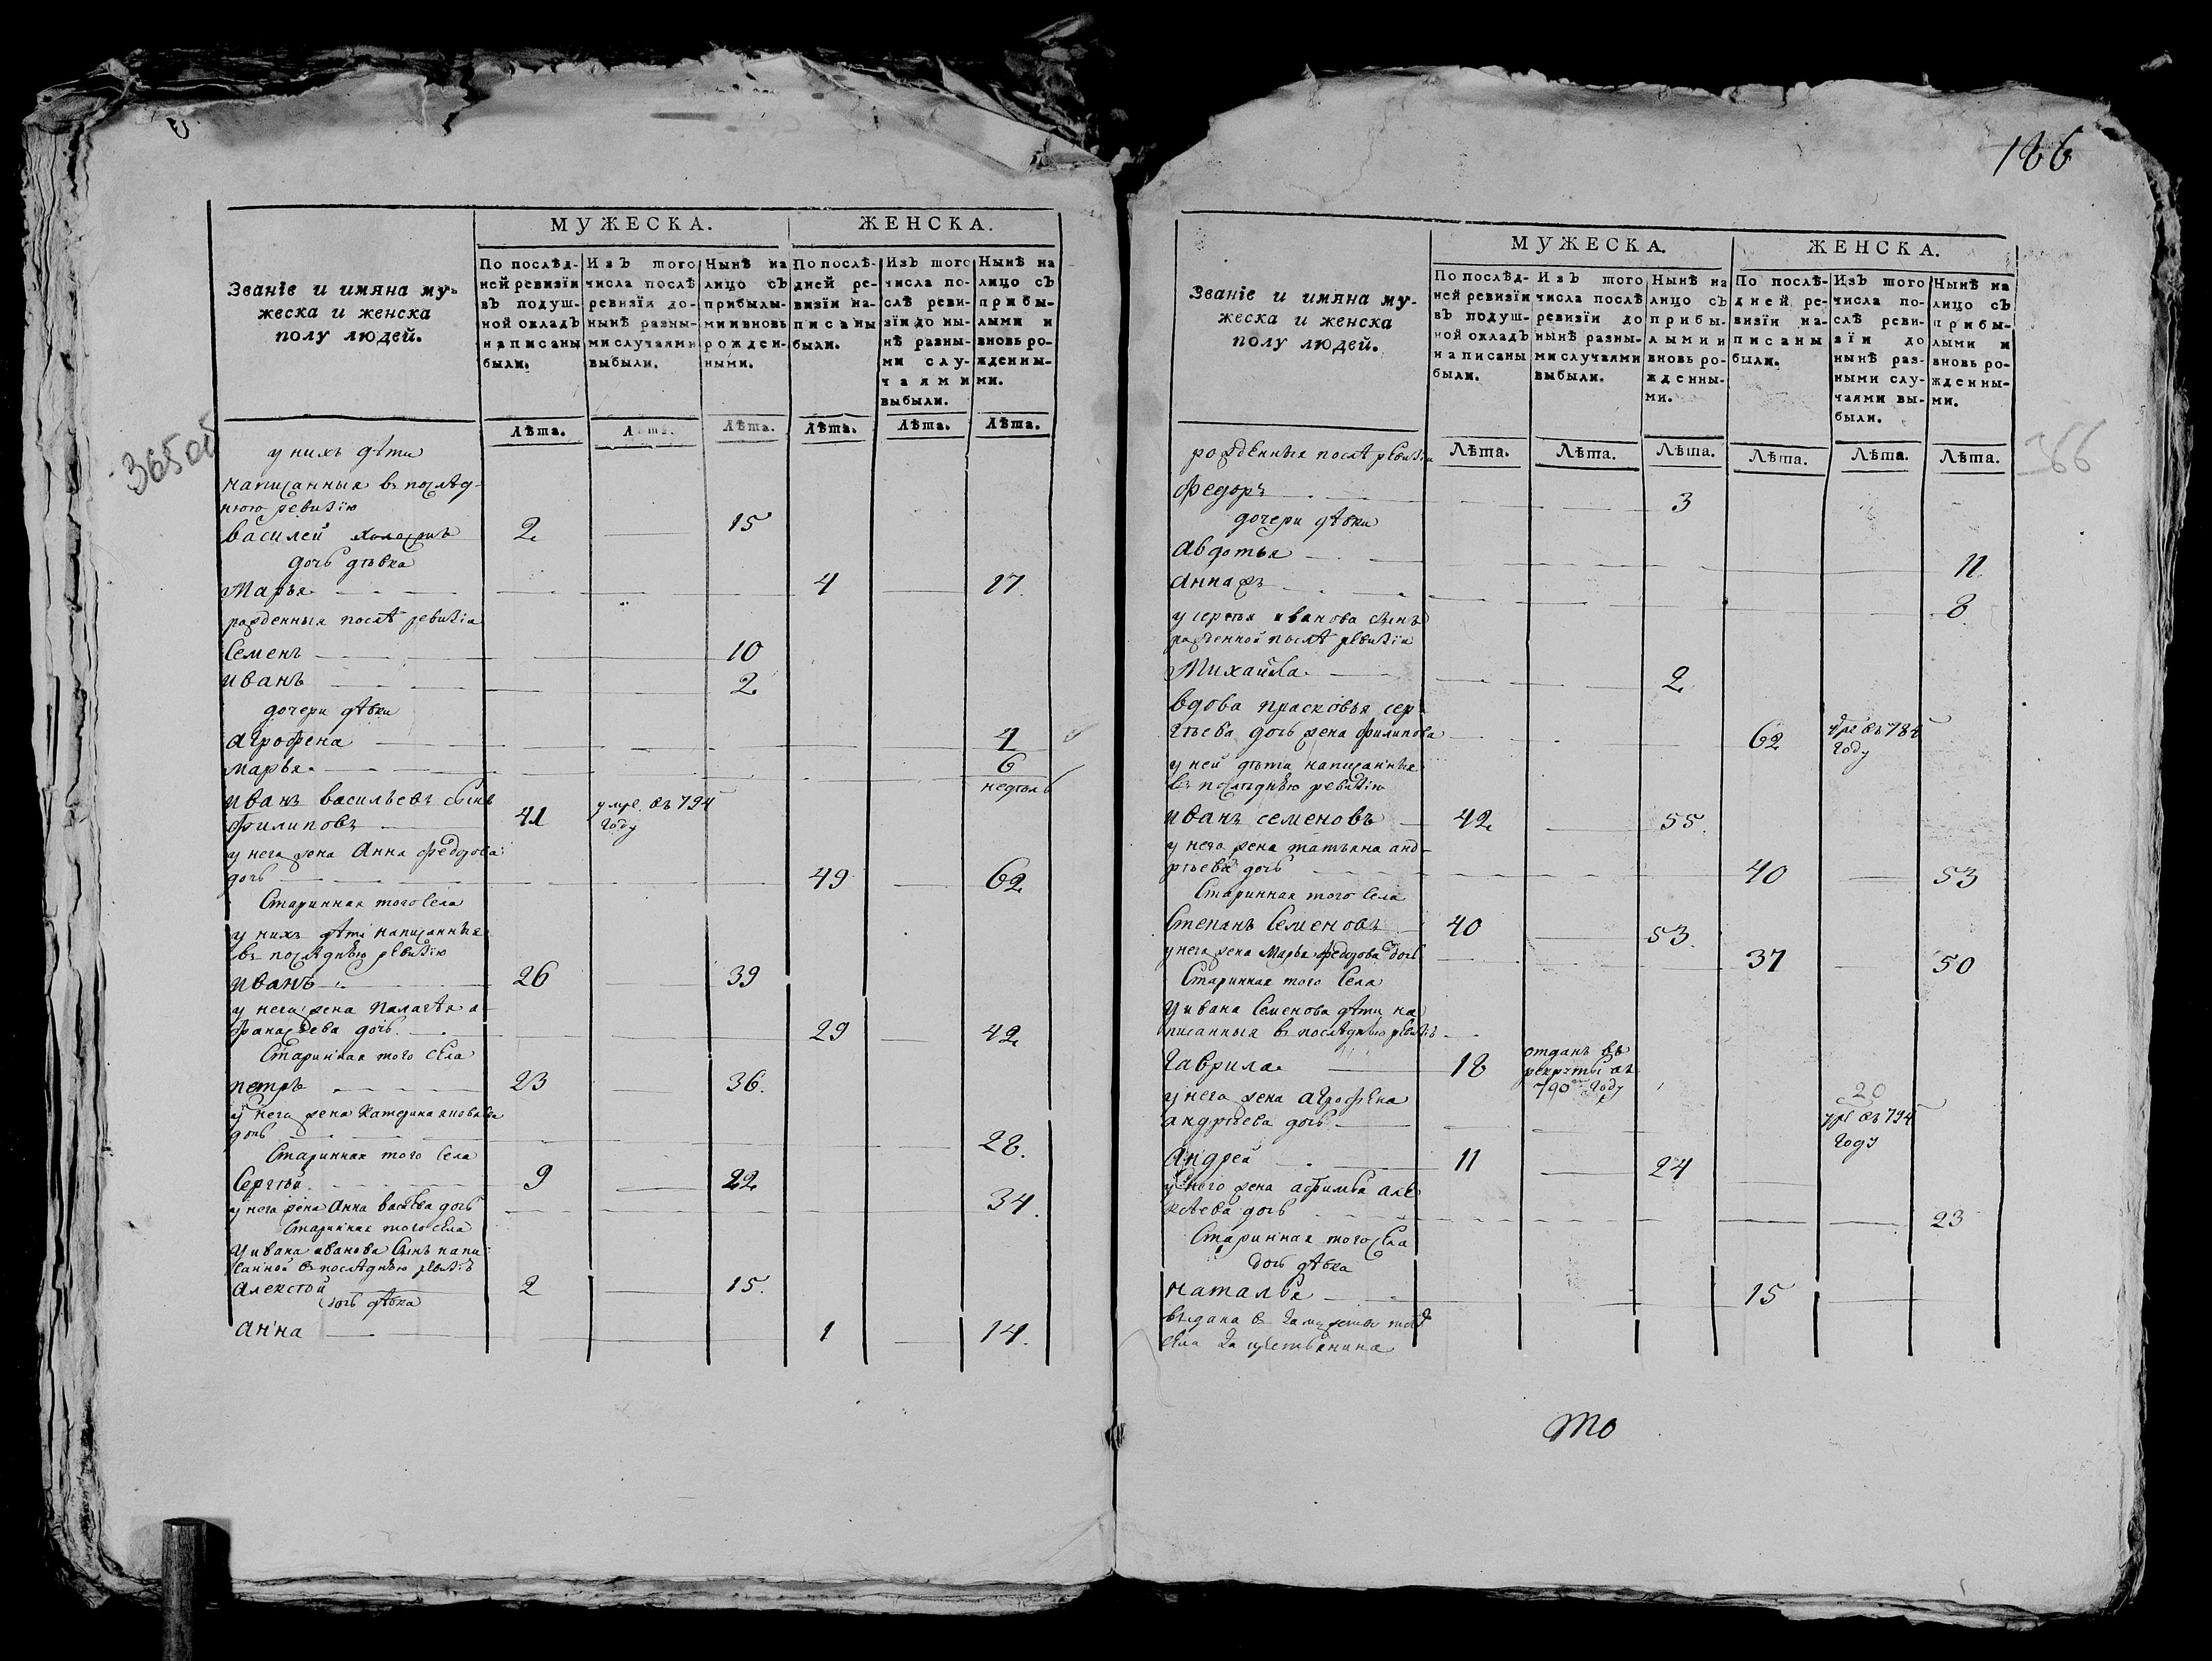 365 об
Званіе и имяна му-
жеска и женска
полу людей.
МУЖЕСКА.
ЖЕНСКА.
По послѣд-
ней ревизіи
въ подуш-
ной окладъ
написаны
были.
Изъ того
числа послѣ
ревизіи до-
нынѣ разны-
ми случаями
выбыли.
Нынѣ на
лицо съ
прибылы-
ми и вновь
рожден-
ными.
По послѣ-
дней ре-
визіи на-
писаны
были.
Изъ того
числа по-
слѣ реви-
зіи до ны-
нѣ разны-
ми слу-
чаями
выбыли.
Нынѣ на
лицо съ
прибы-
лыми и
вновь ро-
жденны-
ми.
Лѣта. Лѣта. Лѣта. Лѣта. Лѣта. Лѣта.
у нихъ дѣти
написанныя в послѣд-
нюю ревизію
Василей 2 15
дочь дѣвка
Марья 4 17
рожденныя послѣ ревизіи
Семенъ 10
Иванъ 2
дочери дѣвки
Агрофена 4
Марья 6
недѣль
Иванъ Васильевъ сынъ
Филиповъ 41 умре въ 794 году
у нега жена Анна Федорова
дочь 49 62
Старинная того села
у нихъ дѣти написанныя
в послѣднюю ревизію
Иванъ 26 39
у нега жена Палагѣя а
фанасьева дочь 29 42
Старинная того села
Петръ 23 36.
у нега жена Катерина
дочь 28.
Старинная того села
Сергѣй 9 22
у нега жена Анна дочь 34.
Старинная того села
У Ивана Иванова сынъ напи
санной в послѣднюю ревизію
Алексѣй 2 15.
дочь дѣвка
Анна 1 14.
186
366
Званіе и имяна му-
жеска и женска
полу людей.
МУЖЕСКА.
ЖЕНСКА.
По послѣд-
ней ревизіи
въ подуш-
ной окладъ
написаны
были.
Изъ того
числа послѣ
ревизіи до
нынѣ разны-
ми случаями
выбыли.
Нынѣ на
лицо съ
прибы-
лыми и
вновь ро-
жденны-
ми.
По послѣ-
дней ре-
визіи на-
писаны
были.
Изъ того
числа по-
слѣ реви-
зіи до
нынѣ раз-
ными слу-
чаями вы-
были.
Нынѣ на
лицо съ
прибы-
лыми и
вновь ро-
жденны-
ми.
Лѣта. Лѣта. Лѣта. Лѣта. Лѣта. Лѣта.
рожденныя послѣ ревизіи
Федоръ 3
дочери дѣвки
Авдотья 11
Анна 8
у Сергѣя Иванова сынъ
рожденной послѣ ревизіи
Михайла 2
Вдова Прасковья Сер
гѣева дочь жена Филипова 62 году
у ней дѣти написанныя
в послѣднюю ревизію
Иванъ Семеновъ 42 55.
у нега жена Татьяна Анд-
рѣева дочь 40 53
Старинная того села
Степанъ Семеновъ 40 53.
у нега жена Марья Федорова дочь 37 50
Старинная того села
У Ивана Семенова дѣти на
писанныя в послѣднюю ревизію
Гаврила 18 отданъ въ рекруты въ 790 году
у нега жена Агрофена
Андрѣева дочь 20 умре въ 794 году
Андрей 11 24
у него жена Афимья Але
ксѣева дочь 23
Старинная того села
дочь дѣвка
Наталья 15
выдана в замужство того
села за крестьянина
то